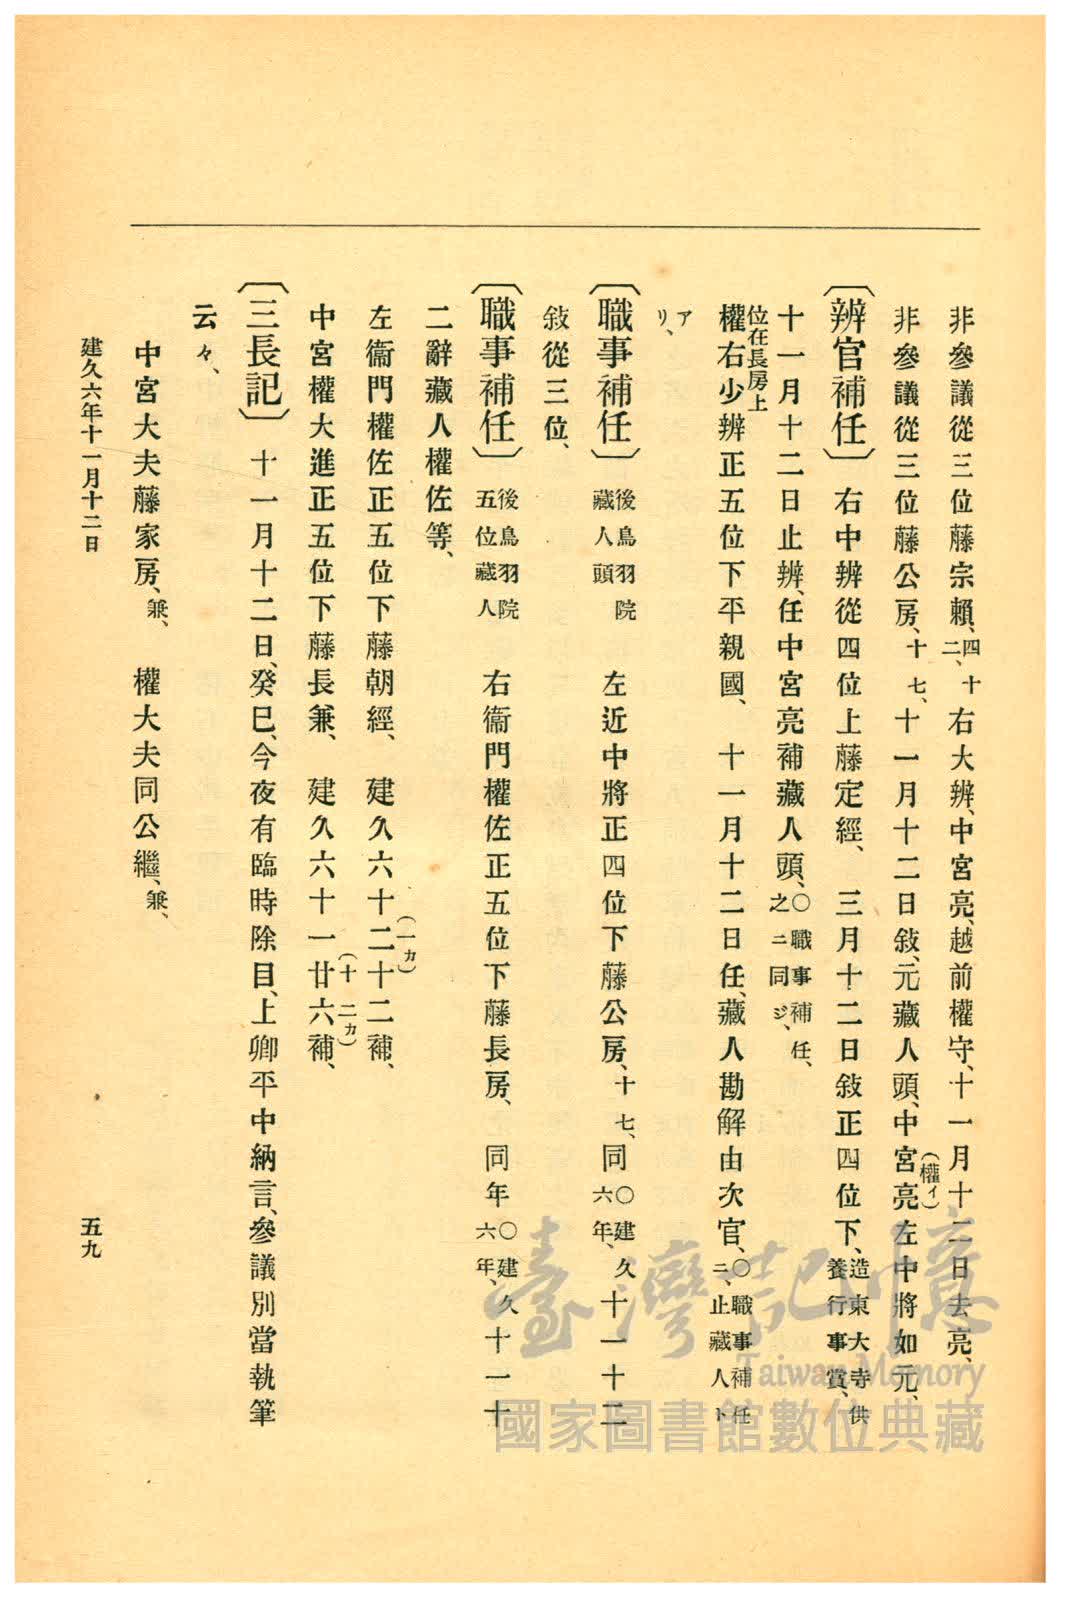 非參議從三位藤宗賴、四十二、右大辨、中宮亮、越前權守、十一月十二日去亮、
非參議從三位藤公房、十七、十一月十二日敍、元藏人頭、中宮亮(權イ)左中將如元、
〔辨官補任〕 右中辨從四位上藤定經、 三月十二日敍正四位下、造東大寺供養行事賞、
十一月十二日止辨、任中宮亮補藏人頭、〇職事補任、之ニ同ジ、
位在長房上
權右少辨正五位下平親國、 十一月十二日任、藏人勘解由次官、〇職事補任ニ、止藏人ト
アリ、
〔職事補任〕 後鳥羽院藏人頭 左近中將正四位下藤公房、十七、同〇建久六年、十一十二
敍從三位、
〔職事補任〕 後鳥羽院五位藏人 右衞門權佐正五位下藤長房、 同年〇建久六年、十一十
二辭藏人權佐等、
左衞門權佐正五位下藤朝經、 建久六十二(一カ)十二補、
中宮權大進正五位下藤長兼、 建久六十一廿六(十二カ)補、
〔三長記〕 十一月十二日、癸巳、今夜有臨時除目、上卿平中納言、參議別當執筆
云々、
中宮大夫藤家房、兼、 權大夫同公繼、兼、
建久六年十一月十二日
五九
臺灣記憶
Taiwan Memory
國家圖書館數位典藏